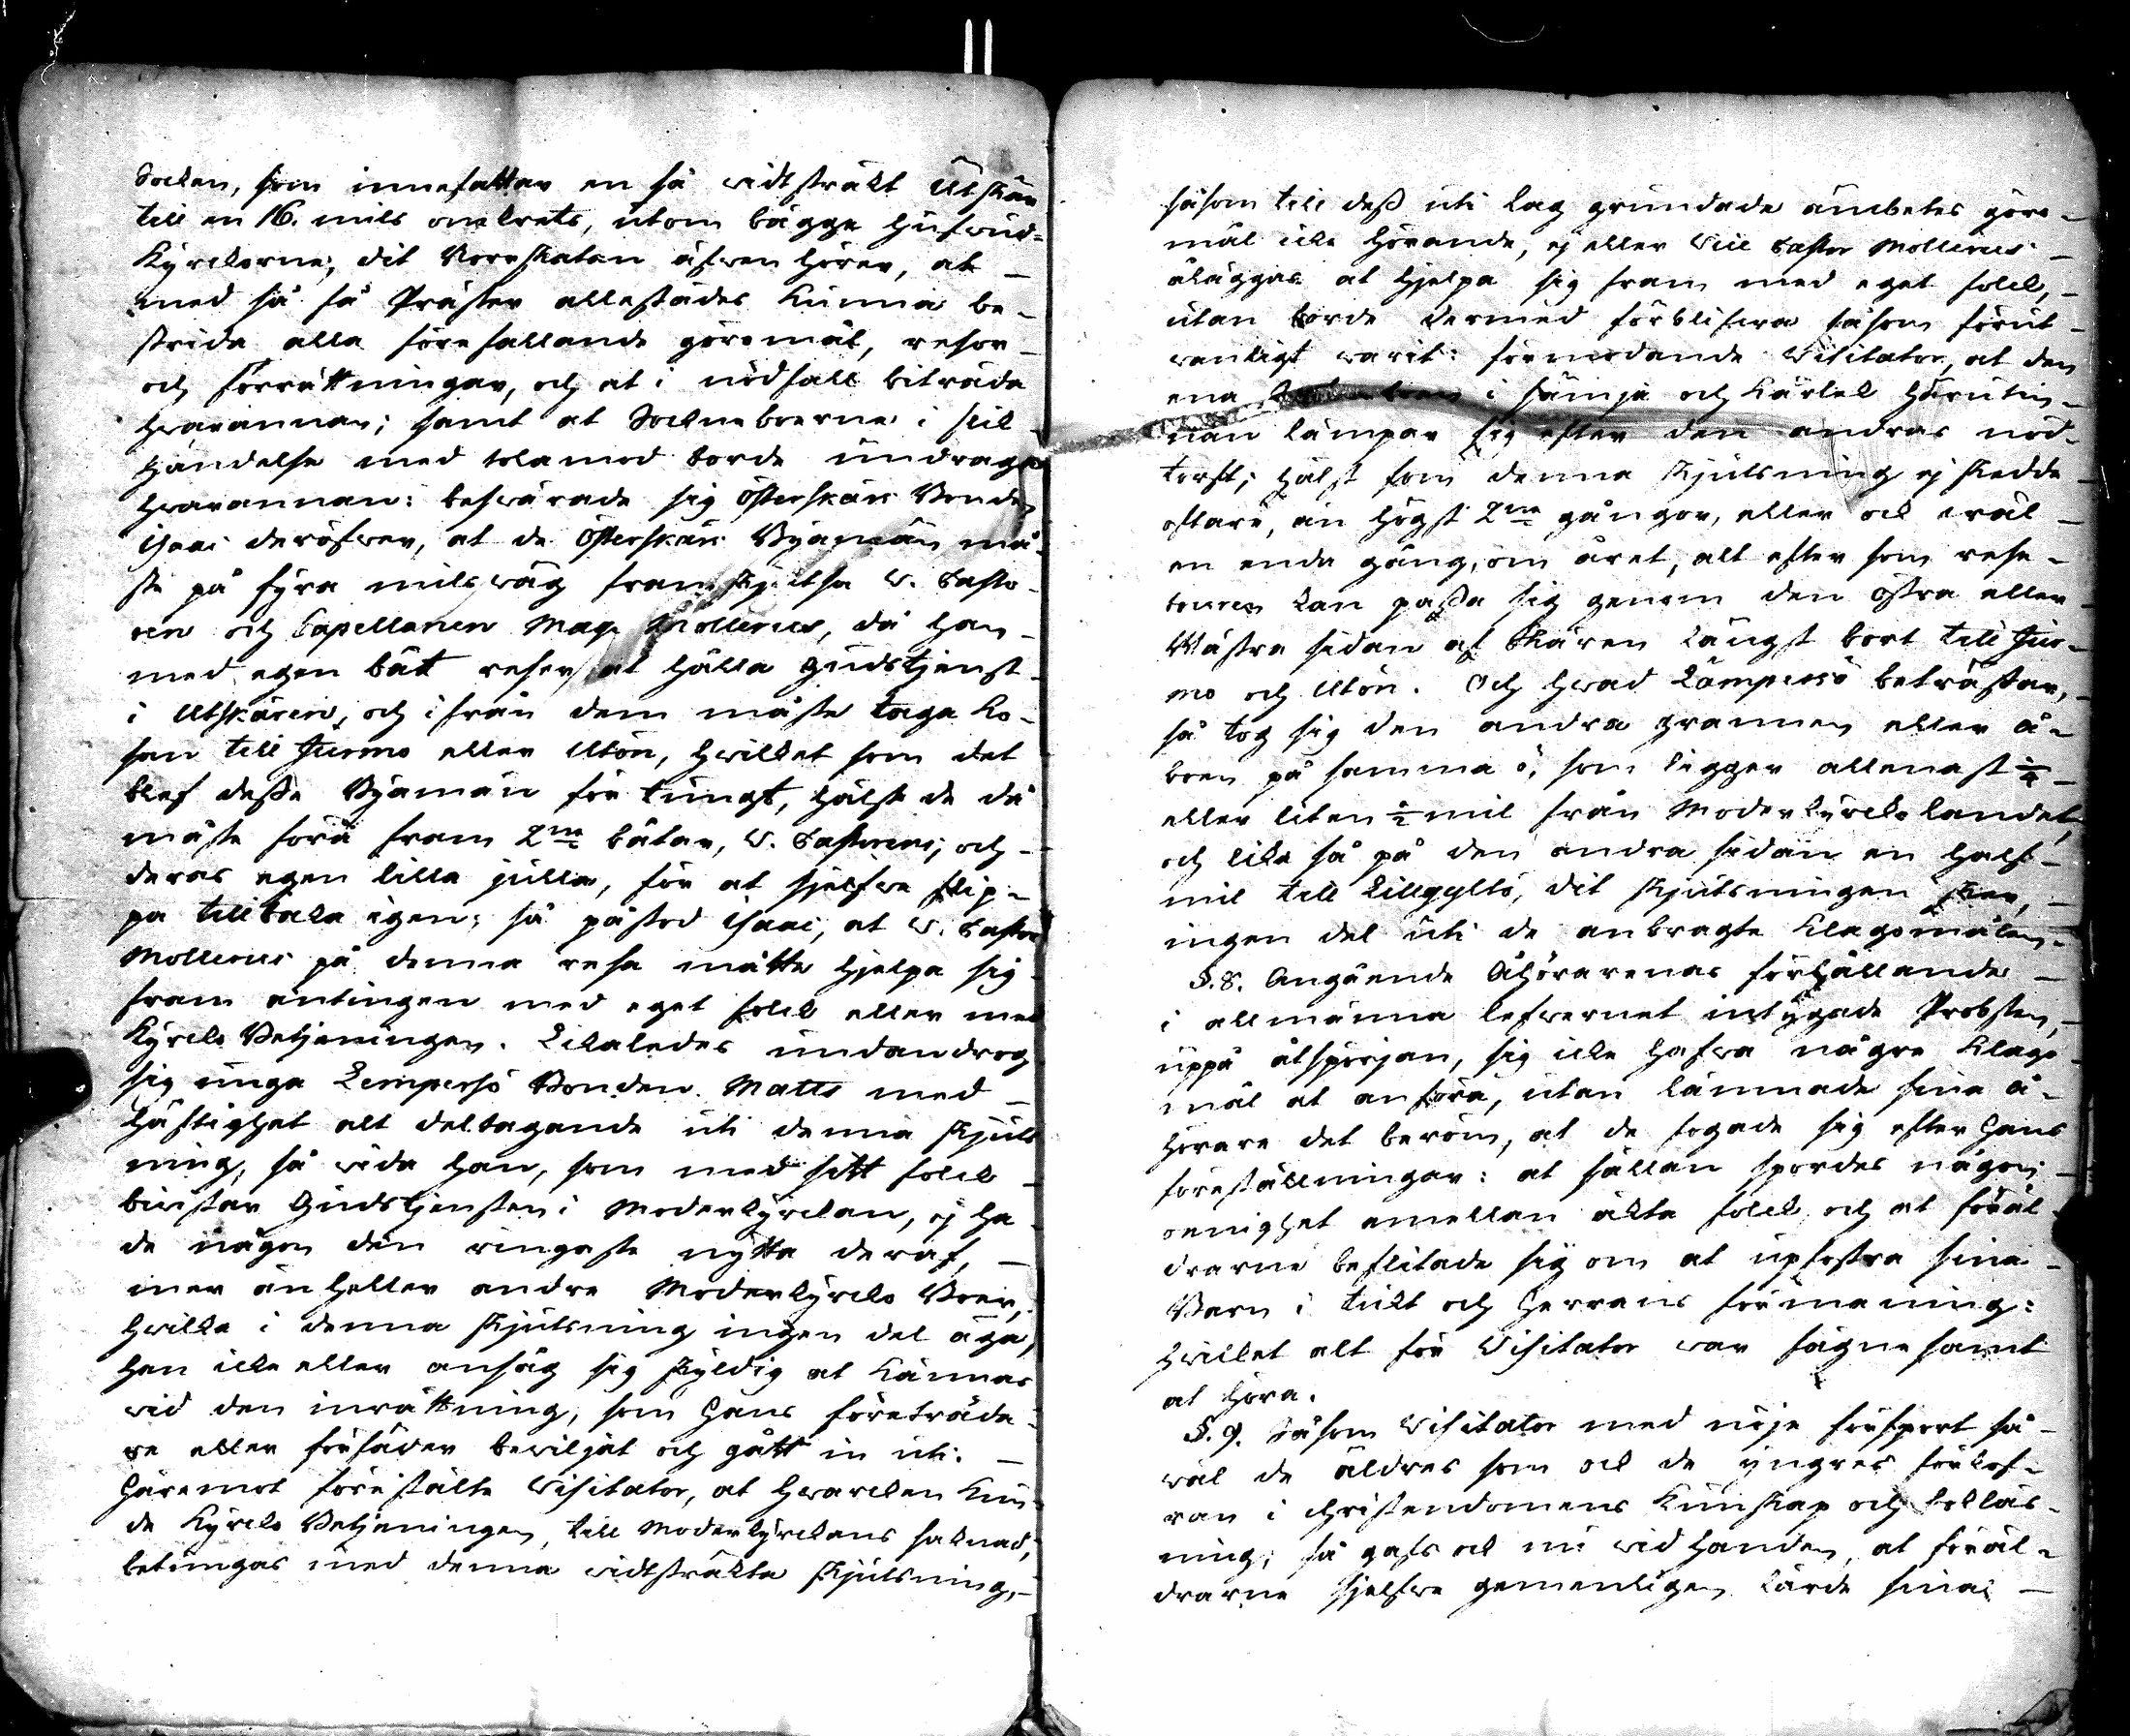 Socken, som innefattar en så widtsträkt Utskär
till en 16. mils omkrets, utom bägge hufwud-
Kyrckorne, dit Norrskatan äfwen hörer, at
med så få Präster allestädes kunna be-
strida alla förefallande göromål, resor
och förrättningar, och at i nödfall biträda
hwarannan; samt at Socknboerne i slik
händelse med tolamod borde undraga
hwarannan: beswärade sig Österskärs Bonden
Isaac deröfwer, at de Österskärs Byamän må-
ste på fyra mils wäg fram skjutsa V. Pasto-
ren och Capellanen Mag. Mollerus, då han
med egen båt reser at hålla Gudstjenst
i Utskären, och ifrån dem måste taga ko-
san till Jurmo eller Utön, hwilket som det
blef desse Byamän för tungt, hälst de då
måste föra fram 2ne båtar, V. Pastorens, och
deras egen lilla julla, för at sjelfwe slip-
pa tillbaka igen; så påstod Isaac, at V. Pastor
Mollerus på denna resa måtte hjelpa sig
fram antingen med eget folck eller med
Kyrcko Betjeningen. Likaledes undandrog
sig unga Lempersö Bonden Matts med
häftighet alt deltagande uti denna skjuts
ning, så wida han, som med sitt folck
biwistar Gudstjensten i Moderkyrckan, ej ha-
de någon den ringaste nytta deraf,
mer än heller andre Moderkyrcko Boer,
hwilka i denna skjutsning ingen del äga,
han icke eller ansåg sig skyldig at kännas
wid den inrättning, som hans företräda-
re eller förfäder bewiljat och gått in uti.
Häremot förestälte Visitator, at hwarcken kun-
de Kyrcko Betjeningen, till Moderkyrckans saknad,
betungas med denna widtsträkta skjutsning,
såsom till dess uti Lag grundade ämbetes göro-
mål icke hörande, ej eller Vice Pastor Mollerus
åläggas at hjelpa sig fram med eget folck,
utan borde dermed förblifwa såsom förut
wanligt warit: förmodande Visitator, at den
ena i sämja och kärlek härutin-
nan lämpar sig efter den andras nöd-
torft; hälst som denna skjutsning ej skedde
oftare, än högst 2ne gångor, eller ock wäl
en enda gång, om året, alt efter som rese-
touren kan passa sig genom den östra eller
Wästra sidan af Skären längst bort till Jur-
mo och Utön. Och hwad Lämpersö beträffar,
så tog sig den andra grannen eller å-
boen på samma ö, som ligger allenast 1/4
eller liten 1/2 mil från Moderkyrcko landet,
och lika så på den andra sidan en half-
mil till Lillgyltö, dit skjutsningen sker,
ingen del uti de anbragte klagomålen.
§. 8. Angående Åhörarenas förhållande
i allmänna lefwernet intygade Probsten,
uppå åtspörjan, sig icke hafwa några klago-
mål at anföra, utan lämnade sina å-
hörare det beröm, at de fogade sig efter hans
föreställningar: at sällan spordes någon
oenighet emellan äkta folck, och at föräl-
drarne beflitade sig om at upfostra sina
Barn i tukt och Herrans förmaning:
hwilket alt för Visitator war fägnesamt
at höra.
§. 9. Såsom Visitator med nöje försport så-
wäl de äldres som ock de yngres förkof-
ran i christendomens kunskap och bokläs-
ning; så gafs ock nu wid handen, at föräl-
drarne sjelfwe gemenligen lärde sina